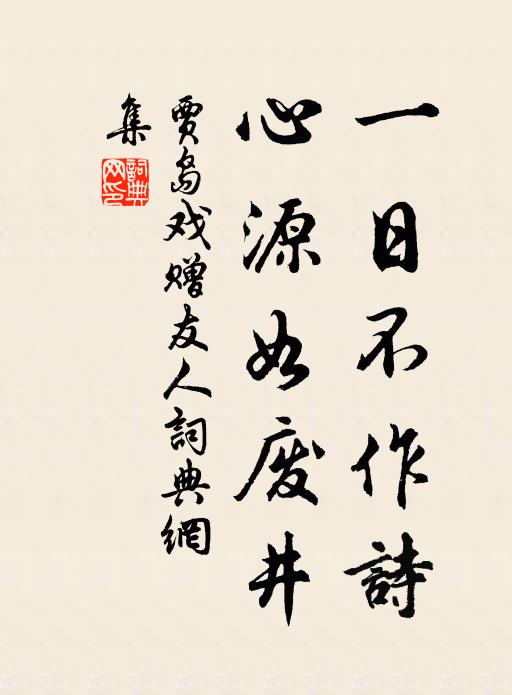 一日不作詩
心源如废井
賈島戏赠友人詞典網
集
詞典
网印